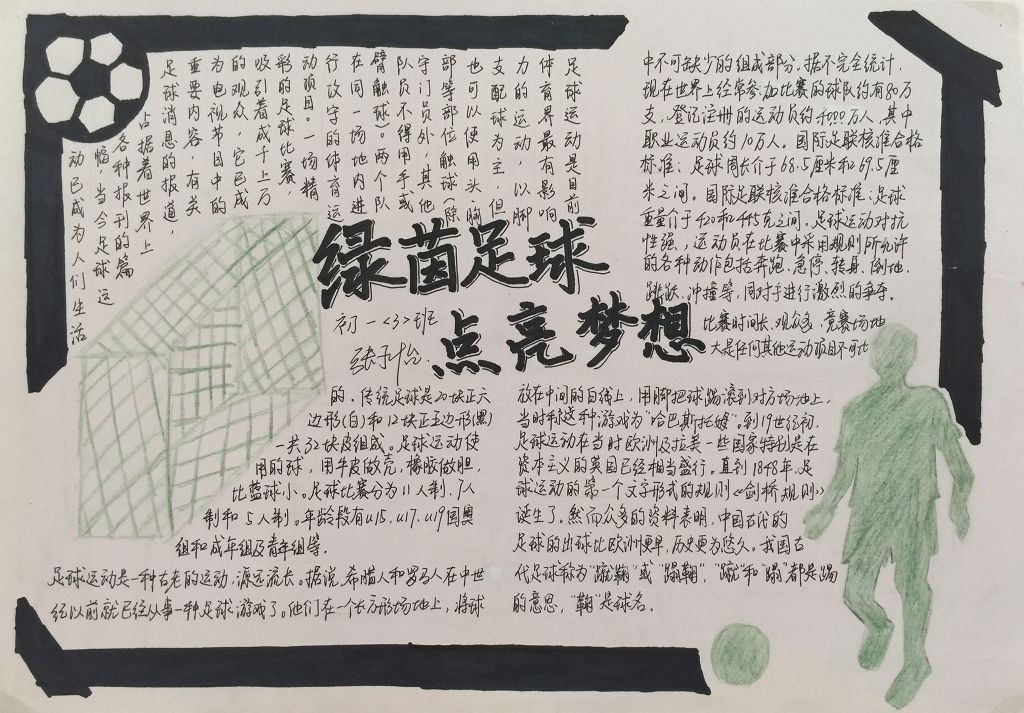 绿茵足球
点亮梦想
初一<3>班
足球运动是目前
体育界最有影响
力的运动，以脚
支配球为主，但
也可以使用头、胸
部等部位触球(除
守门员外，其他
队员不得用手或
臂触球)。两个队
在同一场地内进
行攻守的体育运
动项目。一场精
彩的足球比赛
吸引着成千上万
的观众，它已成
为电视节目中的
重要内容，有关
足球消息的报道，
占据着世界上
各种报刊的篇
幅，当今足球运
动已成为人们生活
中不可缺少的组成部分。据不完全统计，
现在世界上经常参加比赛的球队约有80万
支，登记注册的运动员约4000万人，其中
职业运动员约10万人。国际足联核准合格
标准：足球周长介于68.5厘米和69.5厘
米之间。国际足联核准合格标准：足球
重量介于420和445克之间。足球运动对抗
性强，运动员在比赛中采用规则所允许
的各种动作包括奔跑、急停、转身、倒地、
跳跃、冲撞等，同对手进行激烈的争夺。
比赛时间长、观众多，竞赛场地
大是任何其他运动项目不可比
的。传统足球是20块正六
边形(白)和12块正五边形(黑)
一共32块皮组成。足球运动使
用的球，用牛皮做壳，橡胶做胆，
比蓝球小。足球比赛分为11人制、7人
制和5人制。年龄段有u15、u17、u19国奥
组和成年组及青年组等。
足球运动是一种古老的运动，源远流长。据说，希腊人和罗马人在中世
纪以前就已经从事一种足球游戏了。他们在一个长方形场地上，将球
放在中间的白线上，用脚把球踢滚到对方场地上，
当时称这种游戏为“哈巴斯托姆”。到19世纪初，
足球运动在当时欧洲及拉美一些国家特别是在
资本主义的英国已经相当盛行。直到1848年，足
球运动的第一个文字形式的规则《剑桥规则》
诞生了。然而众多的资料表明，中国古代的
足球的出球比欧洲更早，历史更为悠久。我国古
代足球称为“蹴鞠”或“蹋鞠”，“蹴”和“蹋”都是踢
的意思，“鞠”是球名。